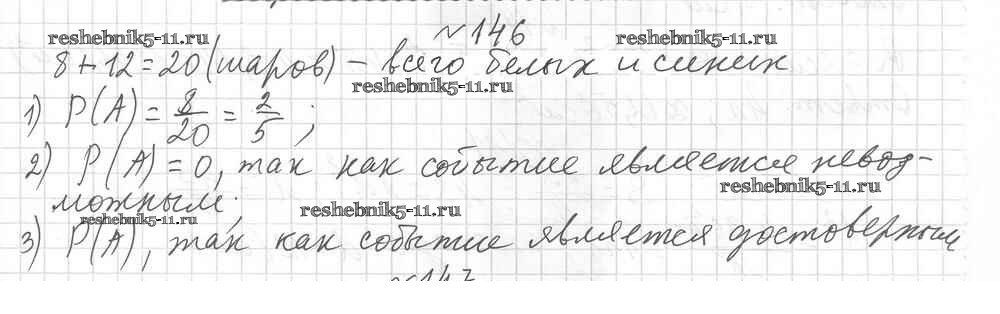 №146
reshebnik5-11.ru reshebnik5-11.ru
8+12=20 (шаров) – всего белых и синих
reshebnik5-11.ru
1) P(A) = 8/20 = 2/5 ;
2) P(A) = 0, так как событие является невоз-
reshebnik5-11.ru
можным;
reshebnik5-11.ru reshebnik5-11.ru
3) P(A), так как событие является достоверным
№147